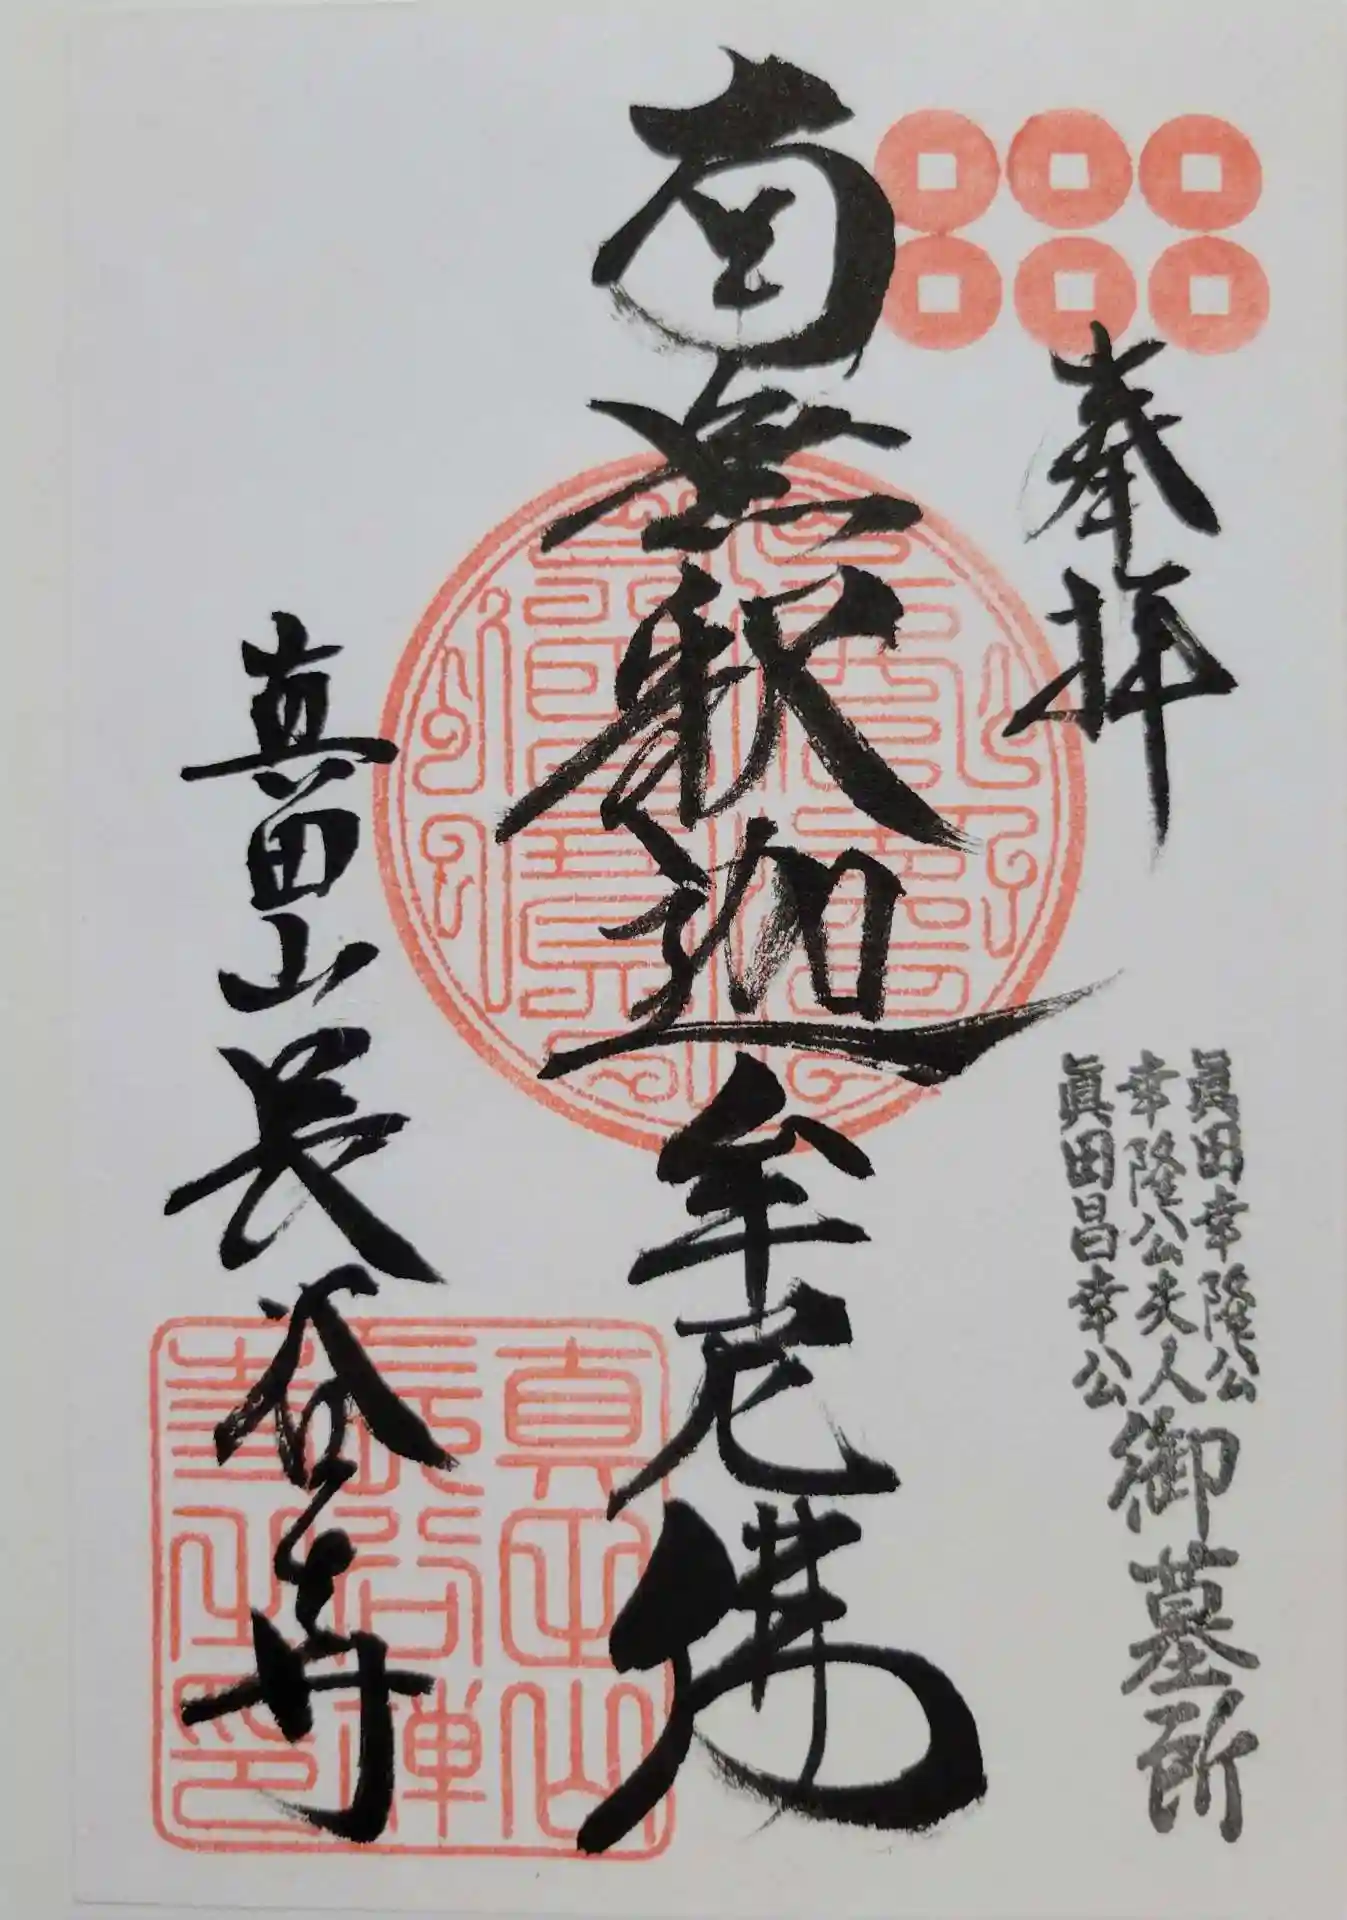 奉拝
眞田幸隆公
幸隆公夫人
眞田昌幸公
御墓所
南無釈迦牟尼佛
真田山長谷寺
真田山
長谷禅
寺主印